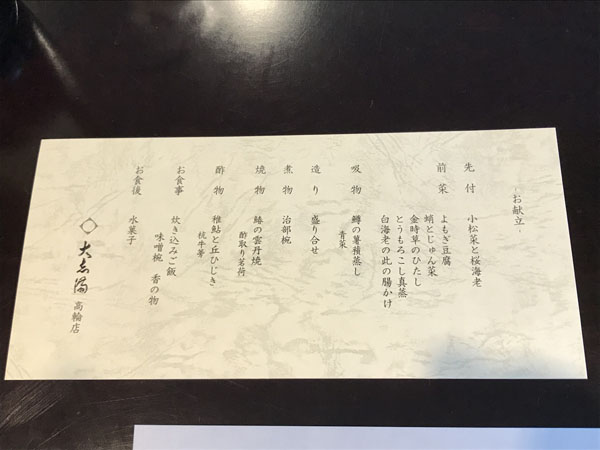 お献立
先付 小松菜と桜海老
前菜 よもぎ豆腐
蛸とじゅん菜
金時草のひたし
とうもろこし真蒸
白海老の此の腸かけ
吸物 鱒の薯積蒸し
青菜
造り 盛り合せ
煮物 治部椀
焼物 鰆の雲丹焼
酢取り茗荷
酢物 稚鮎と丘ひじき
杭牛蒡
お食事 炊き込みご飯
味噌椀 香の物
お食後 水菓子
大志満 高輪店